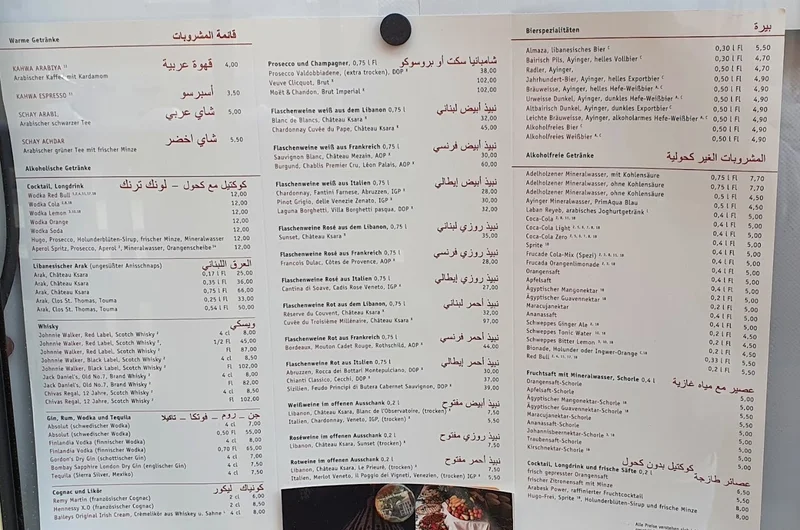 Warme Getränke قائمة المشروبات
KAHWA ARABIYA قهوة عربية 4,00
Arabischer Kaffee mit Kardamom
KAHWA ESPRESSO أسبرسو 3,50
SCHAY ARABI, شاي عربي 5,00
Arabischer schwarzer Tee
SCHAY ACHDAR شاي اخضر 5,50
Arabischer grüner Tee mit frischer Minze
Alkoholische Getränke
Cocktail, Longdrink كوكتيل مع كحول – لونك ترنك
Wodka Red Bull 12,00
Wodka Cola 12,00
Wodka Lemon 12,00
Wodka Orange 12,00
Wodka Soda 12,00
Hugo, Prosecco, Holunderblüten-Sirup, frischer Minze, Mineralwasser 12,00
Aperol Spritz, Prosecco, Aperol, Mineralwasser, Orangenscheibe 12,00
Libanesischer Arak (ungesüßter Anisschnaps) العرق اللبناني
Arak, Château Ksara 0,17 l Fl 25,00
Arak, Château Ksara 0,35 l Fl 36,00
Arak, Château Ksara 0,75 l Fl 66,00
Arak, Clos St. Thomas, Touma 0,25 l Fl 33,00
Arak, Clos St. Thomas, Touma 0,54 l Fl 50,00
Whisky ويسكي
Johnnie Walker, Red Label, Scotch Whisky 4 cl 8,00
Johnnie Walker, Red Label, Scotch Whisky 1/2 Fl 45,00
Johnnie Walker, Red Label, Scotch Whisky Fl 87,00
Johnnie Walker, Black Label, Scotch Whisky 4 cl 8,50
Johnnie Walker, Black Label, Scotch Whisky Fl 102,00
Jack Daniel's, Old No.7, Brand Whisky 4 cl 8,00
Jack Daniel's, Old No.7, Brand Whisky Fl 82,00
Chivas Regal, 12 Jahre, Scotch Whisky 4 cl 8,50
Chivas Regal, 12 Jahre, Scotch Whisky Fl 102,00
Gin, Rum, Wodka und Tequila جن – روم – فوتكا – تاكيلا
Absolut (schwedischer Wodka) 4 cl 7,00
Absolut (schwedischer Wodka) 0,50 Fl 55,00
Finlandia Vodka (finnischer Wodka) 4 cl 8,00
Finlandia Vodka (finnischer Wodka) 0,70 Fl 65,00
Gordon's Dry Gin (schottischer Gin) 4 cl 7,00
Bombay Sapphire London Dry Gin (englischer Gin) 4 cl 7,50
Tequila (Sierra Silver, Mexiko) 4 cl 7,50
Cognac und Likör كونياك – ليكور
Remy Martin (französischer Cognac) 2 cl 6,00
Hennessy X.O (französischer Cognac) 2 cl 8,00
Baileys Original Irish Cream, Crèmelikör aus Whiskey u. Sahne 4 cl 8,00
Prosecco und Champagner, 0,75 l Fl شامبانيا سكت أو بروسوكو
Prosecco Valdobbiadene, (extra trocken), DOP 38,00
Veuve Clicquot, Brut 102,00
Moët & Chandon, Brut Imperial 102,00
Flaschenweine weiß aus dem Libanon 0,75 l نبيذ أبيض لبناني
Blanc de Blancs, Château Ksara 32,00
Chardonnay Cuvée du Pape, Château Ksara 45,00
Flaschenweine weiß aus Frankreich 0,75 l نبيذ أبيض فرنسي
Sauvignon Blanc, Château Mezain, AOP 30,00
Burgund, Chablis Premier Cru, Léon Palais, AOP 60,00
Flaschenweine weiß aus Italien 0,75 l نبيذ أبيض إيطالي
Chardonnay, Fantini Farnese, Abruzzen, IGP 28,00
Pinot Grigio, delle Venezie Zenato, IGP 30,00
Laguna Borghetti, Villa Borghetti pasqua, DOP 32,00
Flaschenweine Rosé aus dem Libanon, 0,75 l نبيذ روزي لبناني
Sunset, Château Ksara 35,00
Flaschenweine Rosé aus Frankreich 0,75 l نبيذ روزي فرنسي
Francois Dulac, Côtes de Provence, AOP 28,00
Flaschenweine Rosé aus Italien 0,75 l نبيذ روزي إيطالي
Cantina di Soave, Cadis Rose Veneto, IGP 31,00
Flaschenweine Rot aus dem Libanon, 0,75 l نبيذ أحمر لبناني
Réserve du Couvent, Château Ksara 32,00
Cuvée du Troisième Millénaire, Château Ksara 97,00
Flaschenweine Rot aus Frankreich 0,75 l نبيذ أحمر فرنسي
Bordeaux, Mouton Cadet Rouge, Rothschild, AOP 44,00
Flaschenweine Rot aus Italien 0,75 l نبيذ أحمر إيطالي
Abruzzen, Rocca dei Bottari Montepulciano, DOP 30,00
Chianti Classico, Cecchi, DOP 37,00
Sizilien, Feudo Principi di Butera Cabernet Sauvignon, DOP 39,00
Weißweine im offenen Ausschank 0,2 l نبيذ أبيض مفتوح
Libanon, Château Ksara, Blanc de l'Observatoire, (trocken) 7,50
Italien, Chardonnay, Veneto, IGP, (trocken) 7,50
Roséweine im offenen Ausschank 0,2 l نبيذ روزي مفتوح
Libanon, Château Ksara, Sunset (trocken) 7,50
Rotweine im offenen Ausschank 0,2 l نبيذ أحمر مفتوح
Libanon, Château Ksara, Le Prieuré, (trocken) 7,50
Italien, Merlot Veneto, il Poggio dei Vigneti, Venezien, (trocken) IGP 7,50
Bierspezialitäten بيرة
Almaza, libanesisches Bier 0,30 l Fl 5,50
Bairisch Pils, Ayinger, helles Vollbier 0,50 l Fl 4,70
Radler, Ayinger, 0,50 l Fl 4,70
Jahrhundert-Bier, Ayinger, helles Exportbier 0,50 l Fl 4,90
Bräuweisse, Ayinger, helles Hefe-Weißbier 0,50 l Fl 4,90
Urweisse Dunkel, Ayinger, dunkles Hefe-Weißbier 0,50 l Fl 4,90
Altbairisch Dunkel, Ayinger, dunkles Exportbier 0,50 l Fl 4,90
Leichte Bräuweisse, Ayinger, alkoholarmes Hefe-Weißbier 0,50 l Fl 4,90
Alkoholfreies Bier 0,50 l Fl 4,90
Alkoholfreies Weißbier 0,50 l Fl 4,90
Alkoholfreie Getränke المشروبات الغير كحولية
Adelholzener Mineralwasser, mit Kohlensäure 0,75 l Fl 7,70
Adelholzener Mineralwasser, ohne Kohlensäure 0,75 l Fl 7,70
Adelholzener Mineralwasser, ohne Kohlensäure 0,5 l Fl 4,50
Ayinger Mineralwasser, PrimAqua Blau 0,5 l Fl 4,50
Laban Reyeb, arabisches Joghurtgetränk
Coca-Cola
Coca-Cola Light
Coca-Cola Zero
Sprite
Frucade Cola-Mix (Spezi)
Frucade Orangenlimonade
Orangensaft
Apfelsaft
Ägyptischer Mangonektar
Ägyptischer Guavennektar
Maracujanektar
Ananassaft
Schweppes Ginger Ale
Schweppes Tonic Water
Schweppes Bitter Lemon
Bionade, Holunder oder Ingwer-Orange 0,33 l Fl 5,50
Red Bull
Fruchtsaft mit Mineralwasser, Schorle 0,4 l عصير مع مياه غازية
Orangensaft-Schorle 5,00
Apfelsaft-Schorle 5,00
Ägyptischer Mangonektar-Schorle 5,00
Ägyptischer Guavennektar-Schorle 5,00
Maracujanektar-Schorle 5,00
Ananassaft-Schorle 5,00
Johannisbeernektar-Schorle 5,00
Traubensaft-Schorle 5,00
Kirschnektar-Schorle 5,00
كوكتيل بدون كحول
Cocktail, Longdrink und frische Säfte 0,2 l عصائر طازجة
frisch gepresster Orangensaft 6,50
frischer Zitronensaft mit Minze 6,50
Arabesk Power, raffinierter Fruchtcocktail 8,00
Hugo-Frei, Sprite, Holunderblüten-Sirup und frische Minze 8,00
Alle Preise